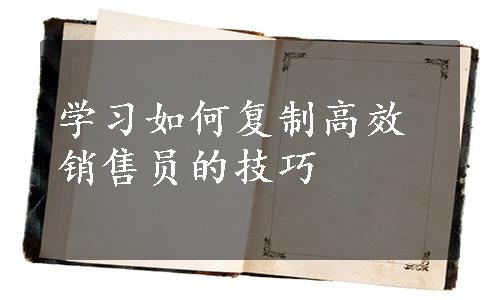 学习如何复制高效
销售员的技巧